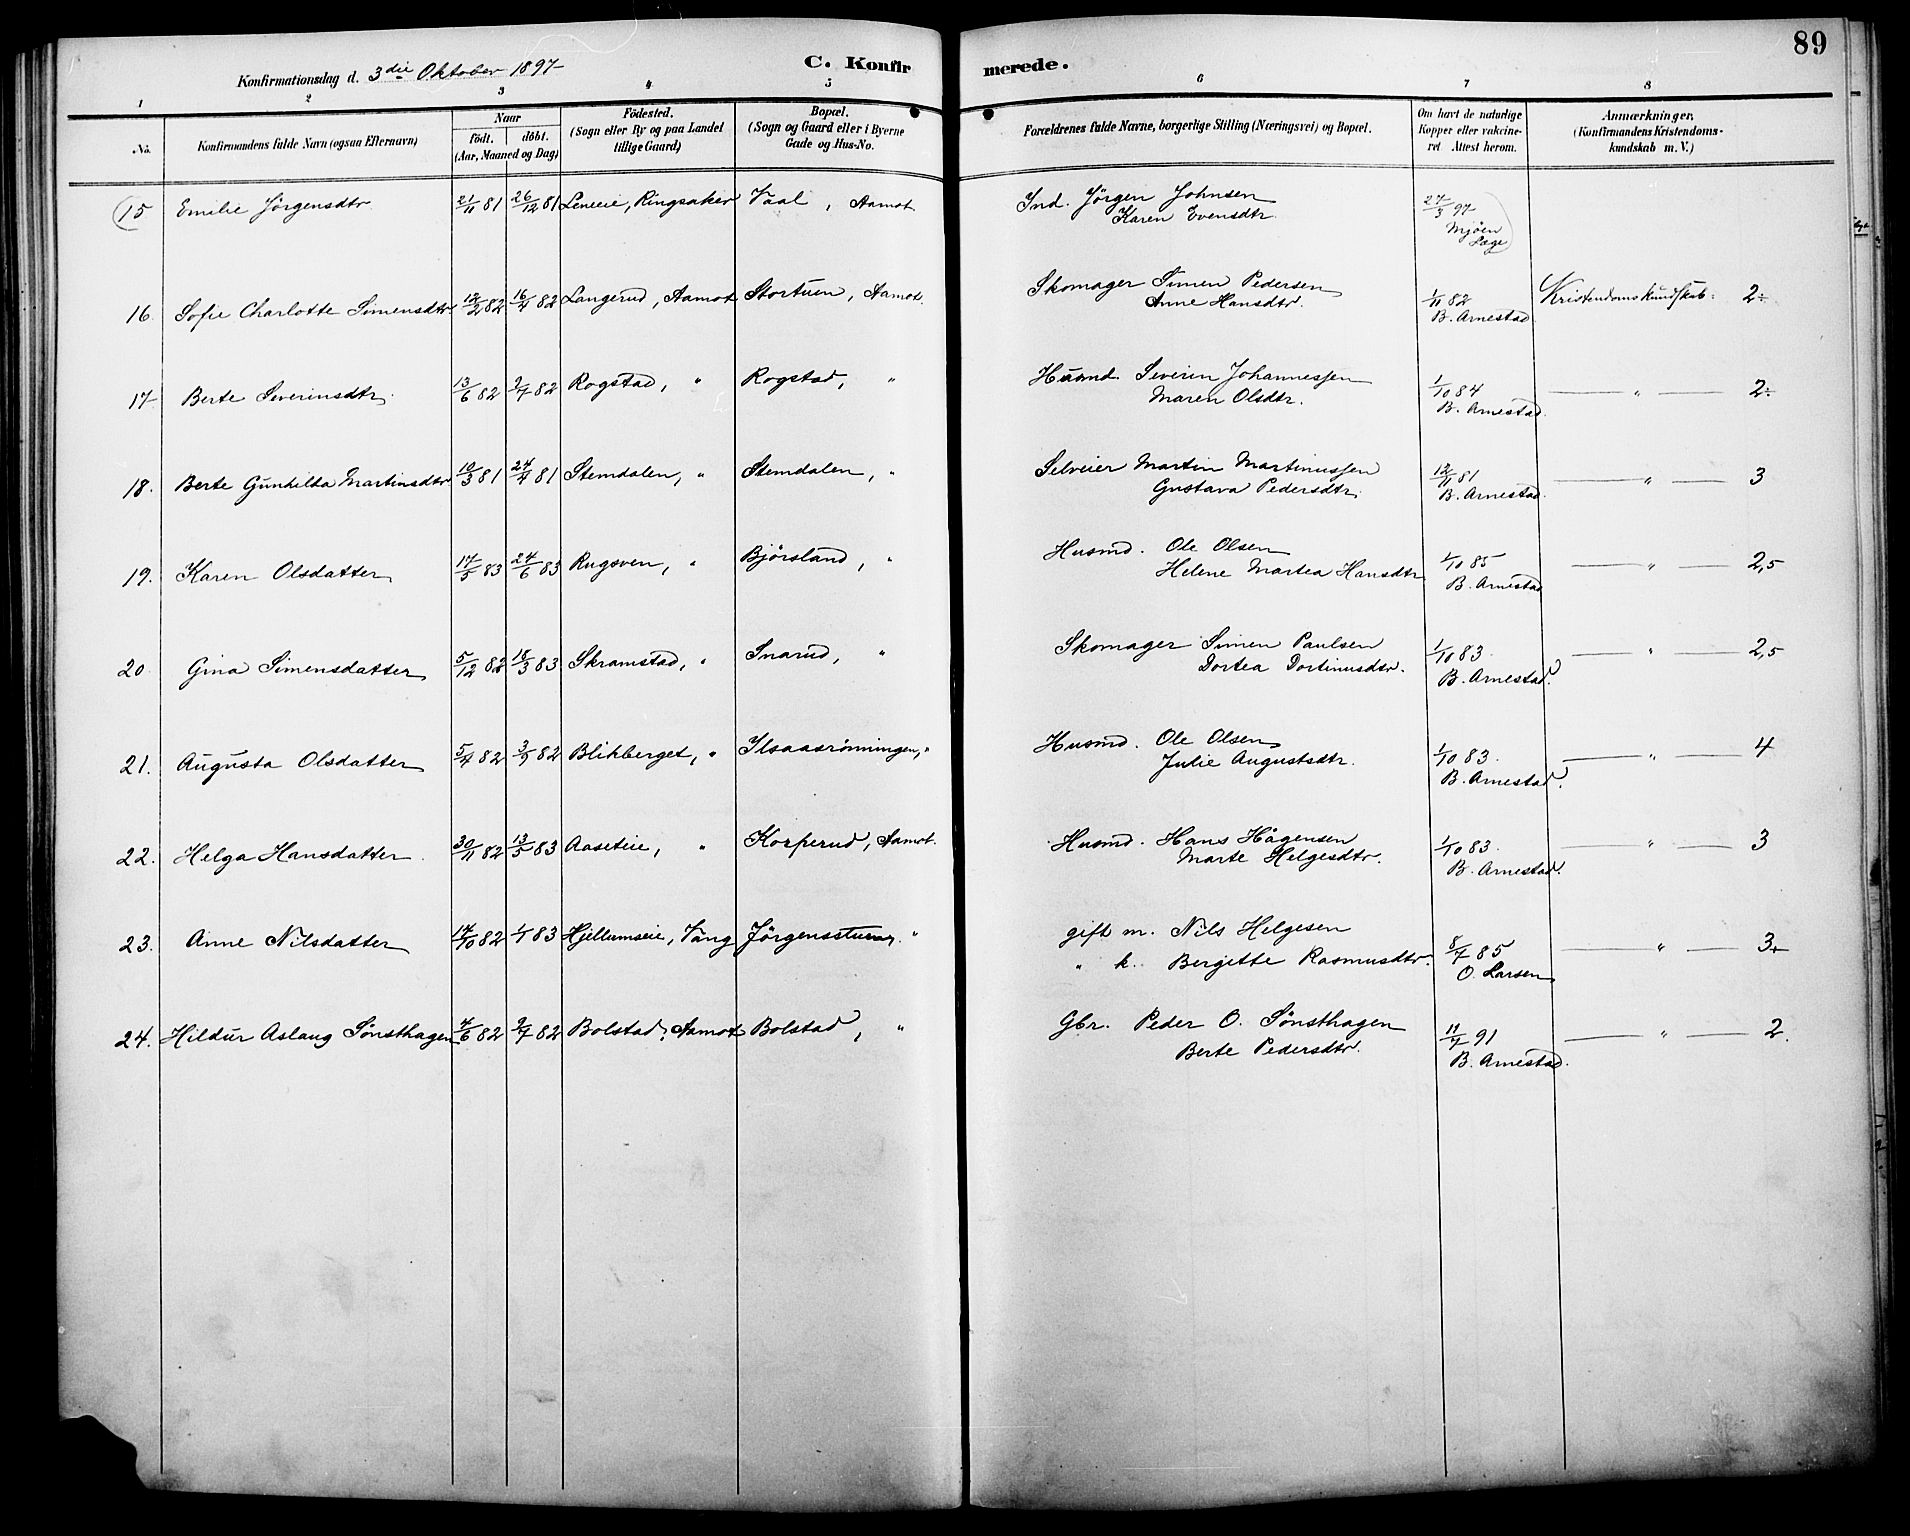 89
Konfirmationsdag d. 3die Oktober 1897
C. Konfirmerede.
1 2 3 4 5 6 7 8
No.
Konfirmandens fulde Navn (ogsaa Efternavn)
Naar
födt. döbt.
(Aar, Maaned og Dag)
Födested.
(Sogn eller By og paa Landet
tillige Gaard)
Bopæl.
(Sogn og Gaard eller i Byerne
Gade og Hus-No.
Forældrenes fulde Navne, borgerlige Stilling (Næringsvei) og Bopæl.
Om havt de naturlige
Kopper eller vakcineret
Attest herom.
Anmærkninger,
(Konfirmandens Kristendomskundskab
m. V.)
15 Emilie Jörgensdtr. 21/11 81 26/12 81 Leneeie, Ringsaker Vaal, Aamot Ind. Jörgen Johnsen 27/3 97
Karen Evensdtr. Mjöen
Læge
16. Sofie Charlotte Simensdtr. 12/2 82 16/4 82 Langerud, Aamot Stortuen, Aamot. Skomager Simen Pedersen 1/11 82 Kristendomskundskab: 2÷
Anne Hansdtr. B. Arnestad
17. Berte Severinsdtr. 13/6 82 2/7 82 Rogstad, " Rogstad, " Husmd. Severin Johannessen 1/10 84 — " — 2÷
Maren Olsdtr. B. Arnestad.
18. Berte Gunhilda Martinsdtr. 10/3 81 24/4 81 Stemdalen, " Stemdalen, " Selveier Martin Martinussen 12/11 81 — " — 3
Gustava Pedersdtr. B. Arnestad.
19. Karen Olsdatter 17/5 83 24/6 83 Rugsven, " Bjørsland, " Husmd. Ole Olsen 1/10 85 — " — 2,5
Helene Martea Hansdtr. B. Arnestad
20. Gina Simensdatter 5/12 82 18/3 83 Skramstad, " Snarud, " Skomager Simen Paulsen 1/10 83. — " — 2,5
Dortea Dortinusdtr. B. Arnestad.
21. Augusta Olsdatter 5/4 82 3/9 82 Blikberget, " Ilsaasrönningen, " Husmd. Ole Olsen 1/10 83. — " — 4
Julie Augustsdtr. B. Arnestad.
22. Helga Hansdatter. 30/11 82 13/5 83 Aaseteie, " Korperud, Aamot. Husmd. Hans Hågensen 1/10 83. — " — 3
Marte Helgesdtr. B. Arnestad.
23. Anne Nilsdatter 14/10 82 1/1 83 Hjellumseie, Vang Jörgensstuen. " gift m. Nils Helgesen 8/7 85 — " — 3+
" k. Bergitte Rasmusdtr. O. Larsen
24. Hildur Aslaug Sønsthagen 4/6 82 2/7 82 Bolstad, Aamot Bolstad, " Gbr. Peder O. Sønsthagen 11/7 91 — " — 2.
Berte Pedersdtr. B. Arnestad.